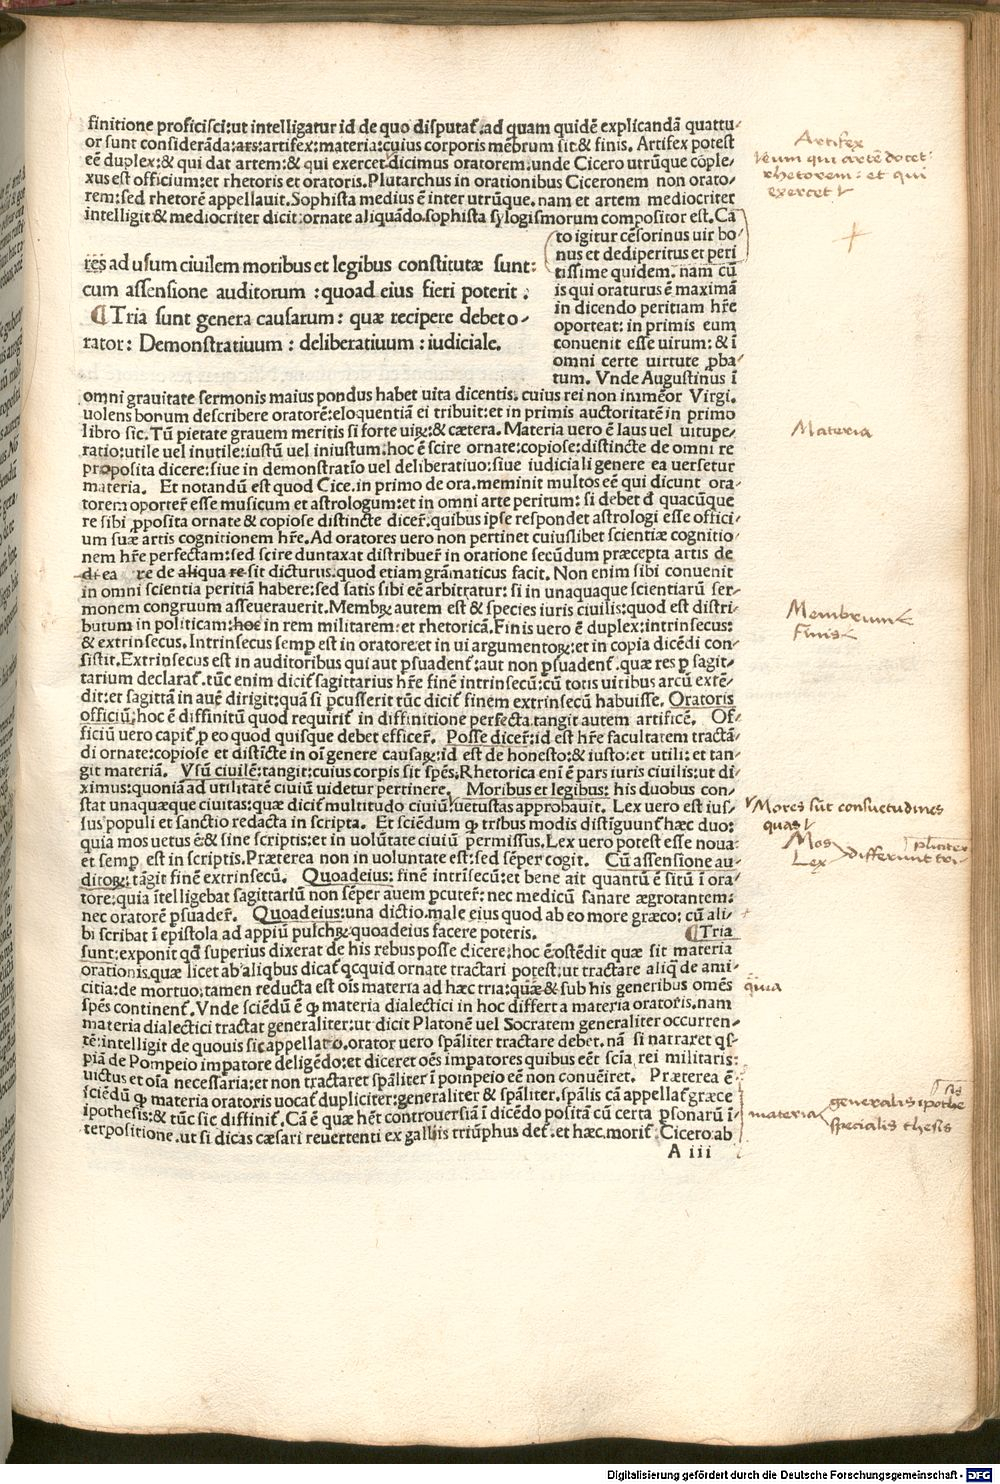 finitione proficisci:ut intelligatur id de quo disputat᷑.ad quam quidē explicandā quattu⸗
or sunt considerāda:ars:artifex:materia:cuius corporis mēbrum sit:& finis. Artifex potest
eē duplex:& qui dat artem:& qui exercet dicimus oratorem.unde Cicero utrūque cōple⸗
xus est officium:et rhetoris et oratoris. Plutarchus in orationibus Ciceronem non orato⸗
rem:sed rhetorē appellauit. Sophista medius ē inter utrūque. nam et artem mediocriter
intelligit & mediocriter dicit:ornate aliquādo.sophista sylogismorum compositor est. Ca
to igitur cēsorinus uir bo⸗
nus et dediperitus et peri
tissime quidem. nam cū
is qui oraturus ē maximā
in dicendo peritiam hr̄e
oporteat: in primis eum
conuenit esse uirum: & ī
omni certe uirtute ꝓba⸗
tum. Vnde Augustinus ī
res ad usum ciuilem moribus et legibus constitutæ sunt:
cum assensione auditorum : quoad eius fieri poterit .
¶ Tria sunt genera causarum : quæ recipere debet o⸗
rator: Demonstratiuum : deliberatiuum : iudiciale.
omni grauitate sermonis maius pondus habet uita dicentis. cuius rei non inmēor Virgi.
uolens bonum describere oratorē:eloquentiā ei tribuit:et in primis auctoritatē in primo
libro sic. Tū pietate grauem meritis si forte uiꝝ:& cætera. Materia uero ē laus uel uitupe⸗
ratio:utile uel inutile:iustū uel iniustum:hoc ē scire ornate:copiose:distincte de omni re
proposita dicere:siue in demonstratio uel deliberatiuo:siue iudiciali genere ea uersetur
materia. Et notandū est quod Cice.in primo de ora.meminit multos eē qui dicunt ora⸗
torem oporter̄ esse musicum et astrologum:et in omni arte peritum: si debet đ quacūque
re sibi ꝓposita ornate & copiose distincte dicer̄.quibus ipse respondet astrologi esse offici⸗
um suæ artis cognitionem hr̄e. Ad oratores uero non pertinet cuiuslibet scientiæ cognitio⸗
nem hr̄e perfectam:sed scire duntaxat distribuer̄ in oratione secūdum præcepta artis de
di ea re de aliqua re sit dicturus.quod etiam grāmaticus facit. Non enim sibi conuenit
in omni scientia peritiā habere:sed satis sibi eē arbitratur: si in unaquaque scientiarū ser⸗
monem congruum asseuerauerit. Membꝝ autem est & species iuris ciuilis:quod est distri⸗
butum in politicam:hoc in rem militarem:et rhetoricā. Finis uero ē duplex:intrinsecus:
& extrinsecus. Intrinsecus semp̱ est in oratore:et in ui argumentoꝝ:et in copia dicēdi con⸗
sistit. Extrinsecus est in auditoribus qui aut p̱suadent᷑:aut non p̱suadent᷑. quæ res p̱ sagit⸗
tarium declarat᷑.tūc enim dicit᷑ sagittarius hr̄e finē intrinsecū:cū totis uiribus arcū extē⸗
dit:et sagittā in auē dirigit:quā si p̱cusserit tūc dicit᷑ finem extrinsecū habuisse. Oratoris
officiū:hoc ē diffinitū quod requirit᷑ in diffinitione perfecta.tangit autem artificē. Of⸗
ficiū uero capit᷑ p̱ eo quod quisque debet efficer̄. Posse dicer̄:id est hr̄e facultatem tractā⸗
di ornate:copiose et distīcte in oī genere causaꝝ:id est de honesto:& iusto:et utili: et tan⸗
git materiā. Vsū ciuilē:tangit:cuius corp̱is sit sp̄es. Rhetorica eni ē pars iuris ciuilis:ut di⸗
ximus:quoniā ad utilitatē ciuiū uidetur pertinere. Moribus et legibus: his duobus con⸗
stat unaquæque ciuitas:quæ dicit᷑ multitudo ciuiū uetustas approbauit. Lex uero est ius⸗
sus populi et sanctio redacta in scripta. Et sciēdum ꝙ tribus modis distiguunt᷑ hæc duo:
quia mos uetus ē:& sine scriptis:et in uolūtate ciuiū permissus. Lex uero potest esse noua:
et semp̱ est in scriptis. Præterea non in uoluntate est:sed sēper cogit. Cū assensione au⸗
ditoꝝ:tāgit finē extrinsecū. Quoadeius: finē intrīsecū:et bene ait quantū ē sitū ī ora⸗
tore:quia ītelligebat sagittariū non sēper auem p̱cuter̄: nec medicū sanare ægrotantem:
nec oratorē p̱suader̄. Quoadeius:una dictio.male eius quod ab eo more græco: cū ali⸗
bi scribat ī epistola ad appiū pulchꝝ:quoadeius facere poteris. ¶Tria
sunt:exponit qđ superius dixerat de his rebus posse dicere:hoc ē:ostēdit quæ sit materia
orationis.quæ licet ab aliqbus dicat᷑ qcquid ornate tractari potest:ut tractare aliq̄ de ami⸗
citia:de mortuo:tamen reducta est oīs materia ad hæc tria:quæ & sub his generibus omēs
sp̄es continent᷑. Vnde sciēdū ē ꝙ materia dialectici in hoc differt a materia oratoris.nam
materia dialectici tractat generaliter:ut dicit Platonē uel Socratem generaliter occurren⸗
tē:intelligit de quouis sic appellato.orator uero sp̄aliter tractare debet. nā si narraret qs⸗
piā de Pompeio impatore deligēdo:et diceret oēs īmpatores quibus eēt scīa rei militaris:
uictus et oīa necessaria:et non tractaret sp̄aliter ī pompeio eē non conuēiret. Præterea ē⸗
sciēdū ꝙ materia oratoris uocat᷑ dupliciter:generaliter & sp̄aliter.sp̄alis cā appellat᷑ græce
ipothesis:& tūc sic diffinit᷑. Cā ē quæ het controuersiā ī dicēdo positā cū certa p̱sonarū ī⸗
terpositione.ut si dicas cæsari reuertenti ex galliis triūphus det᷑. et hæc morit᷑. Cicero ab
A iii
Artifex
eum qui artē docet
rhetorem: et qui
exercet
Materia
Membrum
Finis
Mores sūt consuetudines
quas
Mos
Lex
differunt tri⸗
quia
materia
generalis ipothe
sis
specialis thesis
Digitalisierung gefördert durch die Deutsche Forschungsgemeinschaft - DFG